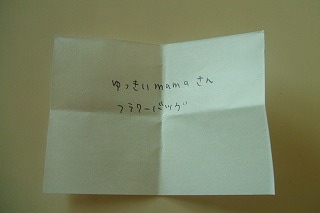 ゆっきいmamaさん
フラワーバッグ